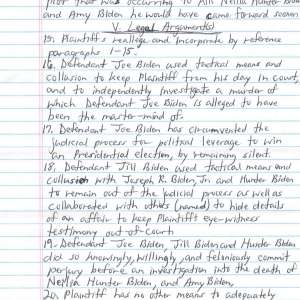 plot that was occurring to kill Neilia Hunter Biden
and Amy Biden he would have came forward sooner.
V. Legal Argument(s)
15. Plaintiff's reallege and incorporate by reference
paragraphs 1-15.
16. Defendant Joe Biden used tactical means and
collusion to keep Plaintiff from his day in court,
and to independently investigate a murder of
which Defendant Joe Biden is alleged to have
been the master-mind of.
17. Defendant Joe Biden has circumvented the
judicial process for political leverage to win
an Presidential election, by remaining silent.
18. Defendant Jill Biden used tactical means and
collusion with Joseph R. Biden, Jr and Hunter Biden
to remain out of the judicial process as well as
collaborated with others (named) to hide details
of an affair to keep Plaintiff's eye-witness
testimony out of court.
19. Defendant Joe Biden, Jill Biden and Hunter Biden
did so knowingly, willingly, and feloniously commit
perjury before an investigation into the death of
Neilia Hunter Biden, and Amy Biden.
20. Plaintiff has no other means to adequately